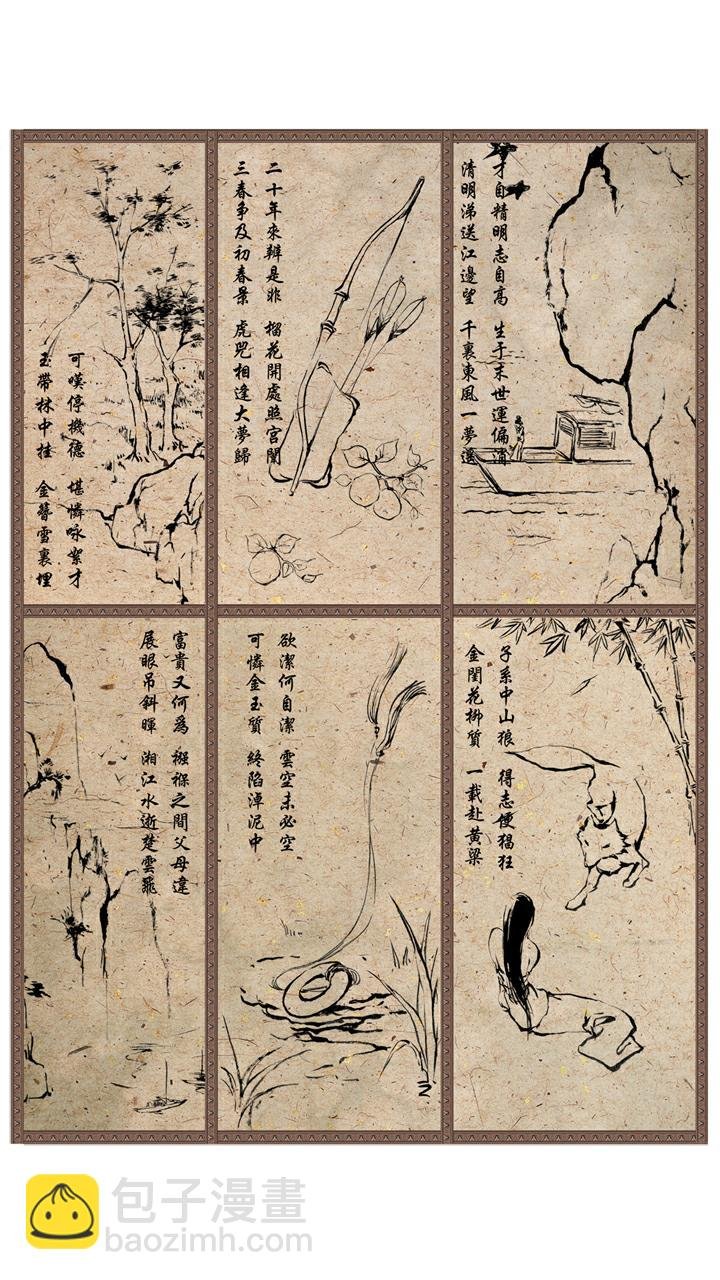 可嘆停機德 堪憐咏絮才
玉帶林中挂 金簪雪裏埋
二十年來辨是非 榴花開處照宮闈
三春爭及初春景 虎兕相逢大夢歸
才自精明志自高 生于末世運偏消
清明涕送江邊望 千裏東風一夢遙
富貴又何爲 襁褓之間父母違
展眼吊斜暉 湘江水逝楚雲飛
欲潔何自潔 雲空未必空
可憐金玉質 終陷淖泥中
子系中山狼 得志便猖狂
金閨花柳質 一載赴黃粱
包子漫畫
baozimh.com